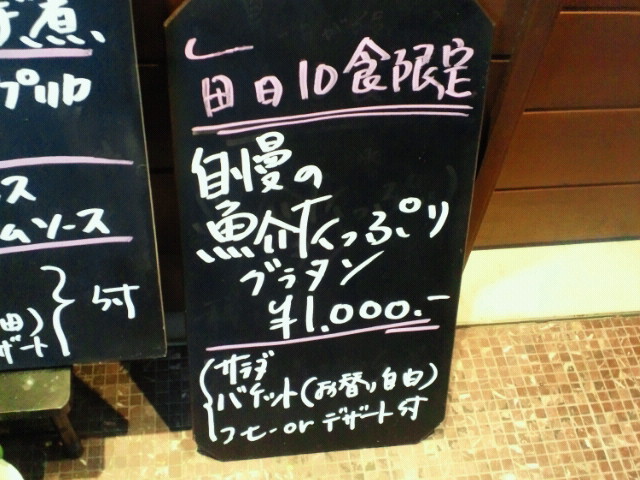 毎日10食限定
自慢の
魚介たっぷり
グラタン
¥1.000.-
サラダ
バゲット(お替り自由)
コーヒー or デザート付
煮
プリロ
ス
ムソース
付
由)
ザート